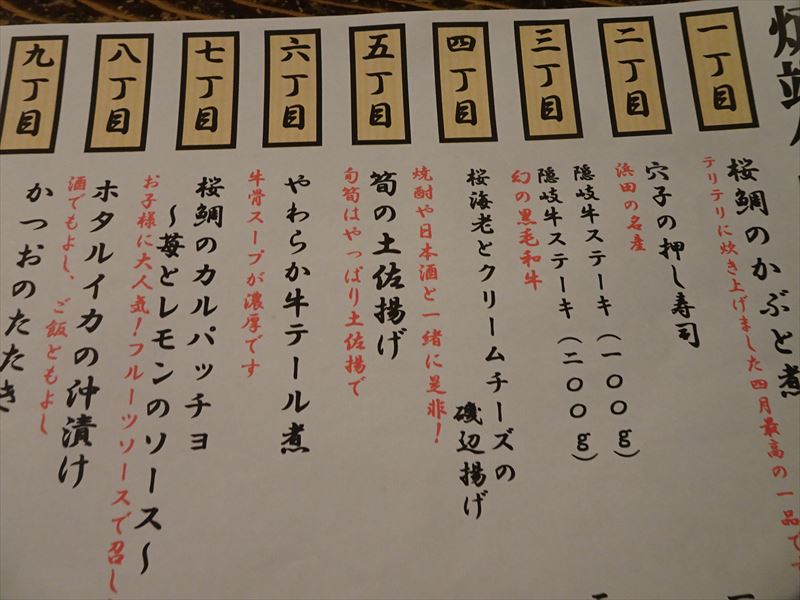 炉端
一丁目
桜鯛のかぶと煮
テリテリに炊き上げました四月最高の一品で
二丁目
穴子の押し寿司
浜田の名産
三丁目
隠岐牛ステーキ（一００ｇ）
隠岐牛ステーキ（二００ｇ）
幻の黒毛和牛
四丁目
桜海老とクリームチーズの
磯辺揚げ
焼酎や日本酒と一緒に是非！
五丁目
筍の土佐揚げ
旬筍はやっぱり土佐揚で
六丁目
やわらか牛テール煮
牛骨スープが濃厚です
七丁目
桜鯛のカルパッチョ
～苺とレモンのソース～
お子様に大人気！フルーツソースで召し
八丁目
ホタルイカの沖漬け
酒でもよし、ご飯ともよし
九丁目
かつおのたたき